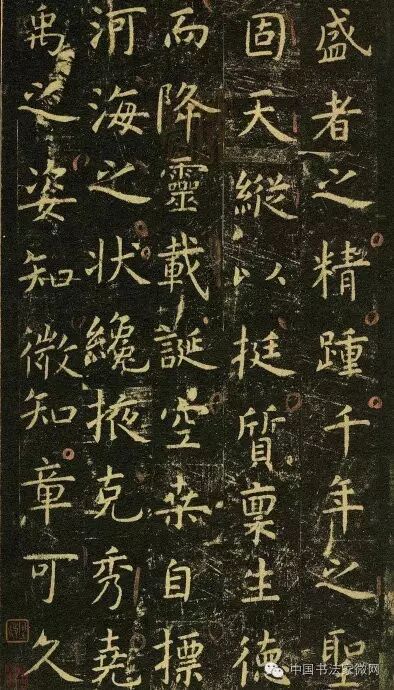 盛者之精踵千年之聖
固天縱以挺質禀生德
而降靈載誕空桒自摽
河海之状纔掖克秀堯
禹之姿知微知章可久
中国书法家微网